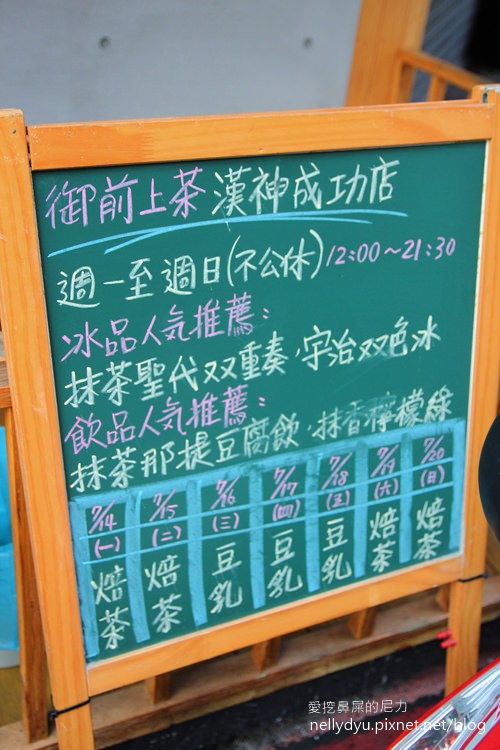 御前上茶 漢神成功店
週一至週日(不公休) 12:00~21:30
冰品人気推薦:
抹茶聖代双重奏·宇治双色冰
飲品人気推薦:
抹茶那提豆腐飲·抹香檸檬綠
7/14 7/15 7/16 7/17 7/18 7/19 7/20
(一) (二) (三) (四) (五) (六) (日)
焙茶 焙茶 豆乳 豆乳 豆乳 焙茶 焙茶
愛挖鼻屎的尼力
nellydyu.pixnet.net/blog